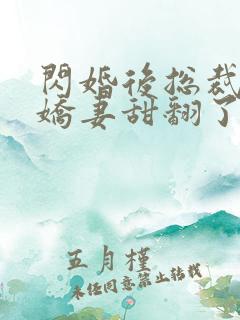 閃婚後總裁
嬌妻甜翻了
五月槿
未經同意禁止轉載